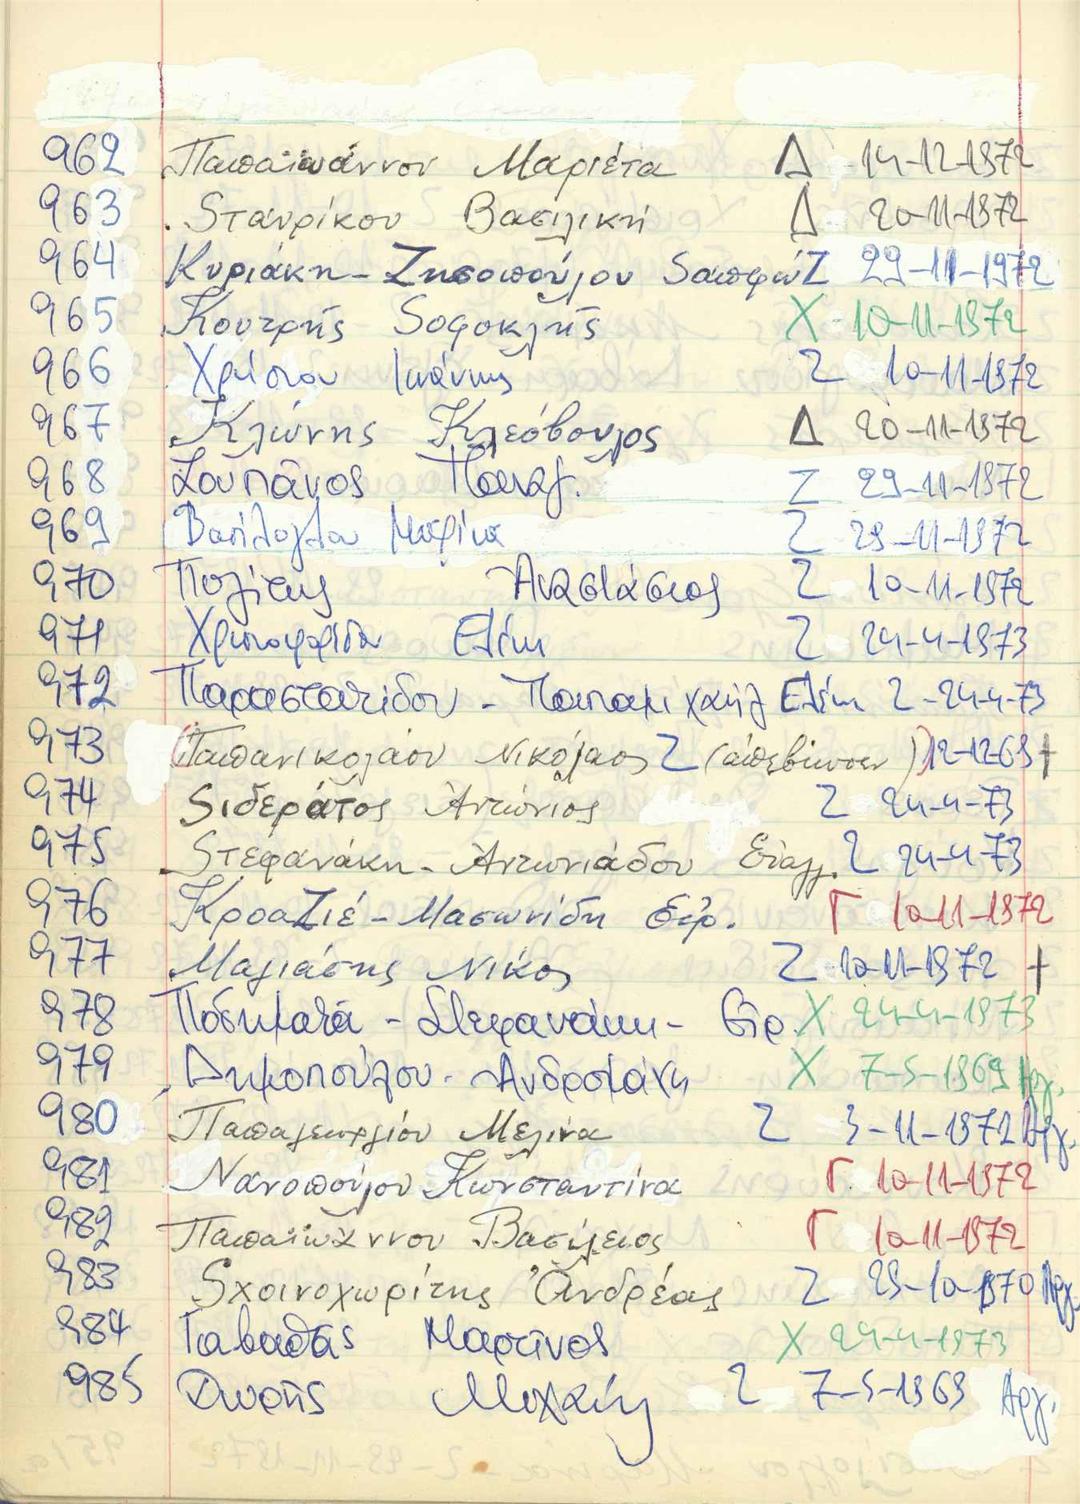 962 Παπαϊωάννου Μαριέτα Δ 14-12-1972
963 Σταυρίκου Βασιλική Δ 20-11-1972
964 Κυριάκη-Ζησοπούλου Σαπφώ Ζ 29-11-1972
965 Κουτρής Σοφοκλής Χ 10-11-1972
966 Χρήστου Ιωάννης Ζ 10-11-1972
967 Κλώνης Κλεόβουλος Δ 20-11-1972
968 Σουπάνος Παναγ. Ζ 29-11-1972
969 Βασίλογλου Μαρίνα Ζ 29-11-1972
970 Πολίτης Αναστάσιος Ζ 10-11-1972
971 Χριστοφορίδου Ελένη Ζ 24-4-1973
972 Παραστατίδου - Παπαμιχαήλ Ελένη Ζ - 24-4-73
973 (Παπανικολάου Νικόλαος Ζ (απεβίωσεν)) 12-12-69 †
974 Σιδεράτος Αντώνιος Ζ 24-4-73
975 Στεφανάκη - Αντωνιάδου Εύαγγ. Ζ 24-4-73
976 Κροαζιέ - Μασωνίδη Ειρ. Γ 10-11-1972
977 Μαλιάσης Νίκος Ζ 10-11-1972 †
978 Ποσηματά - Στεφανάκη - Ειρ. Χ 24-4-1973
979 Δημοπούλου - Ανδροτάκη Χ 7-5-1969 Αργ.
980 Παπαγεωργίου Μελίνα Ζ 3-11-1972 Αργ.
981 Νανοπούλου Κωνσταντίνα Γ. 10-11-1972
982 Παπαϊωάννου Βασίλειος Γ 10-11-1972
983 Σχοινοχωρίτης Ανδρέας Ζ 29-10-1970 Αργ.
984 Γαβαθάς Μαρτίνος Χ 24-4-1973
985 Δωρής Μιχαήλ Ζ 7-5-1969 Αργ.